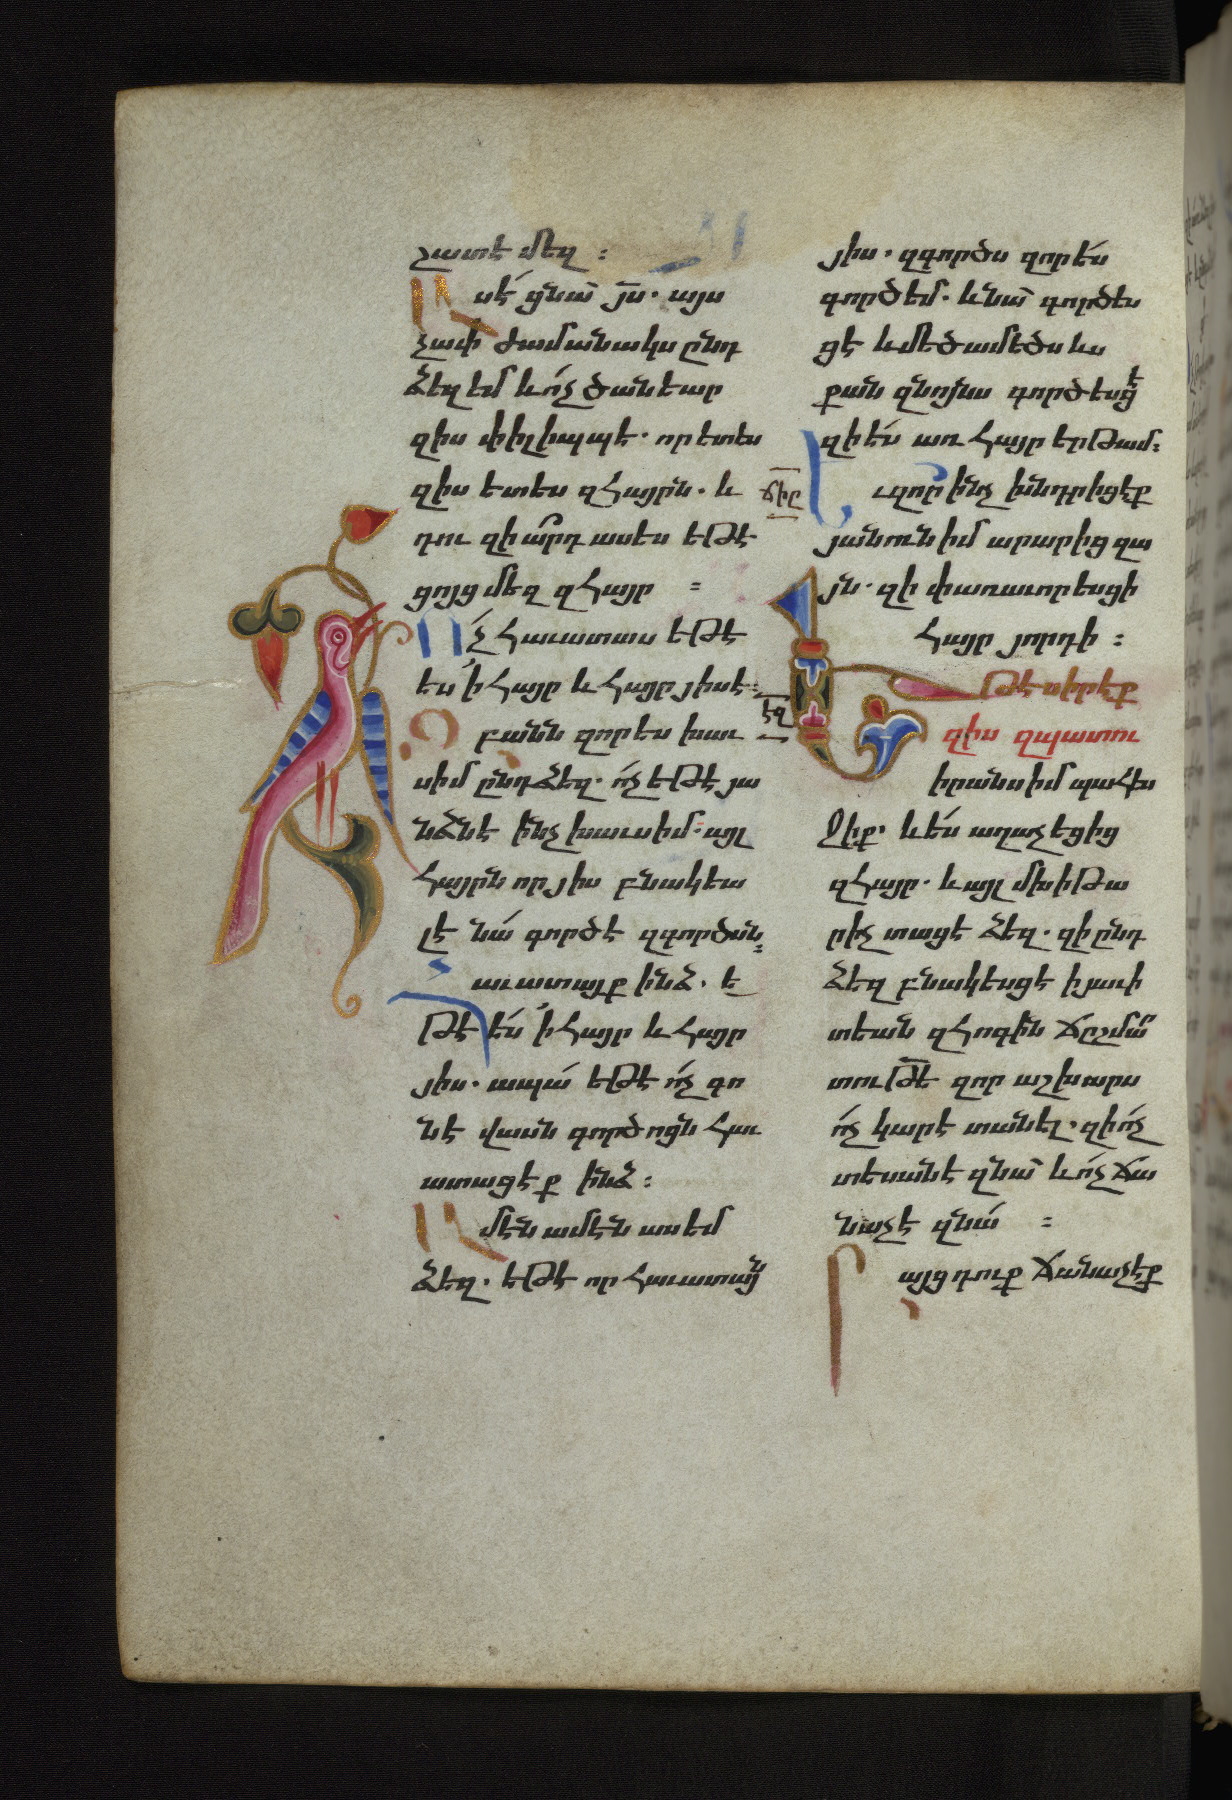 շատէ մեզ ։
Ասէ ցնա յս. այս
չափ ժամանակս ընդ
ձեզ եմ և ոչ ծանեար
զիս փիլիպպէ. որ ետես
զիս ետես զհայրն. և
դու զիարդ ասես եթէ
ցոյց մեզ զհայր ։
Ոչ հաւատաս եթէ
ես ի հայր և հայր յիս է ։
Բանն զոր ես խաւ
սիմ ընդ ձեզ. ոչ եթէ յա
նձնէ ինչ խաւսիմ. այլ
հայրն որ յիս բնակեա
լ է նա գործէ զգործսն ։
Հաւատայք ինձ. ե
թէ ես ի հայր և հայր
յիս. ապա եթէ ոչ գո
նէ վասն գործոցն հաւ
ատացէք ինձ ։
Ամէն ամէն ասեմ
ձեզ. եթէ որ հաւատայցն
յիս. զգործս զոր ես
գործեմ. և նա գործես
ցէ և մեծամեծս ևս
քան զնոյնս գործեսցէ
զի ես առ հայր երթամ ։
ճիը
Եւ զոր ինչ խնդրիցէք
յանուն իմ արարից զա
յն. զի փառաւորեսցի
հայր յորդի ։
Եթէ սիրէք
էզ
զիս զպատու
իրանս իմ պահես
ջիք. և ես աղաչեցից
զհայր. և այլ մխիթա
րիչ տացէ ձեզ. զի ընդ
ձեզ բնակեսցէ ի յաւի
տեան զհոգին ճըշմա
տութե զոր աշխարս
ոչ կարէ տանել. զի ոչ
տեսանէ զնա և ոչ ճա
նաչէ զնա ։
Բայց դուք ճանաչէք